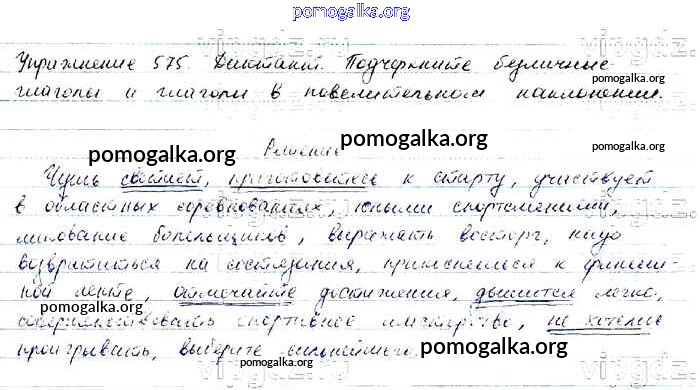 pomogalka.org
Упражнение 575. Диктант. Подчеркните безличные
глаголы и глаголы в повелительном наклонении.
pomogalka.org
Решение
pomogalka.org
pomogalka.org
Чуть светает, приготовьтесь к старту, участвует
в областных соревнованиях, юными спортсменами,
ликование болельщиков, выражать восторг, надо
возвратиться на состязания, прикоснемся к финиш-
ной ленте, отмечайте достижения, дышится легко,
pomogalka.org
совершенствовать спортивное мастерство, не хотелось
проигрывать, выберите сильнейшего.
pomogalka.org
pomogalka.org